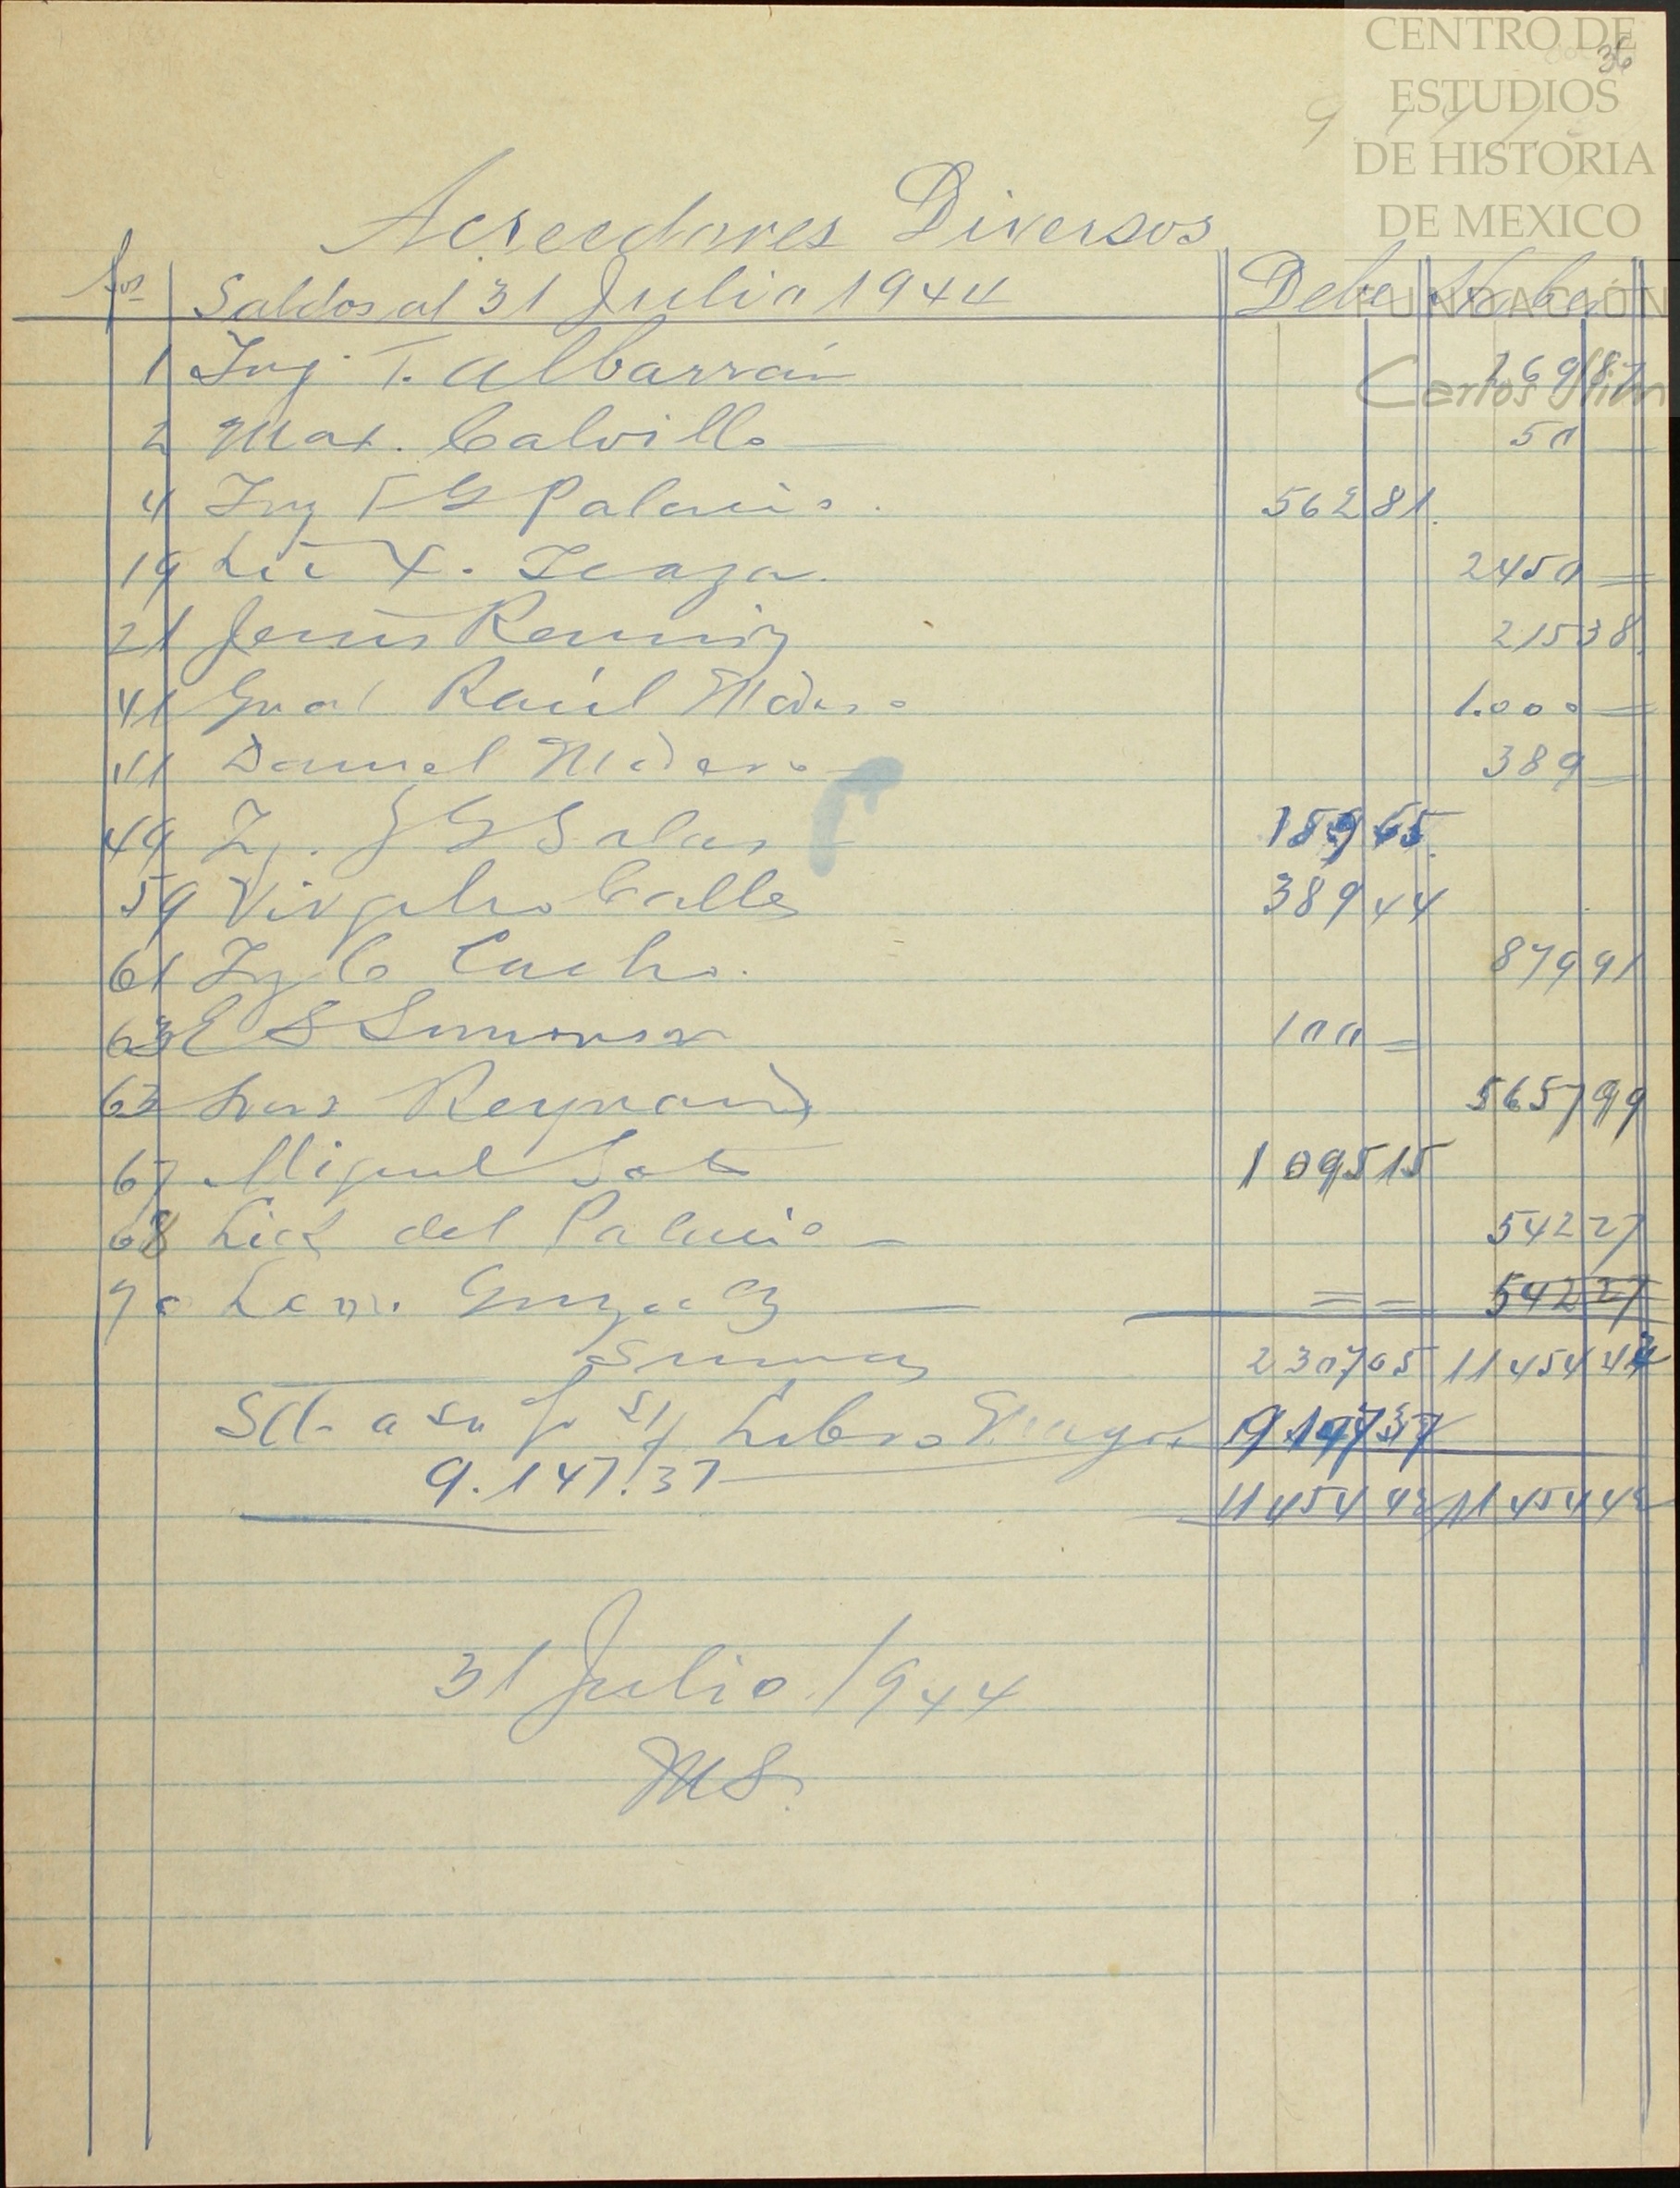 CENTRO DE
ESTUDIOS
DE HISTORIA
DE MEXICO
FUNDACIÓN
Carlos Slim
36
Acreedores Diversos
Fos Saldos al 31 Julio 1944 Debe Haber
1 Ing. T. Albarrán 269 87
2 Max. Calvillo 50
4 Ing F G Palacio. 562 81.
19 Lic X. Icaza. 2450 =
21 Jesus Ramirez 215 38.
41 Gral Raúl Madero 1.000 =
41 Daniel Madero 389 =
49 Ig. J G Salas 159 65.
59 Virgilio Calles 389 44
61 Ig C Cacho. 879 91
63 E S Simonson 100 =
63 Luis Reynaud 5657 99
67 Miguel Soto 1095 15
68 Lick del Palacio 542 27
70 Leon. Gonzalez = = 542 27
Sumas 2307 05 11454 42
Sdo a su fv s/ Libro Mayor 9147 37
9.147.37
11454 42 11454 42
31 Julio 1944
MS.